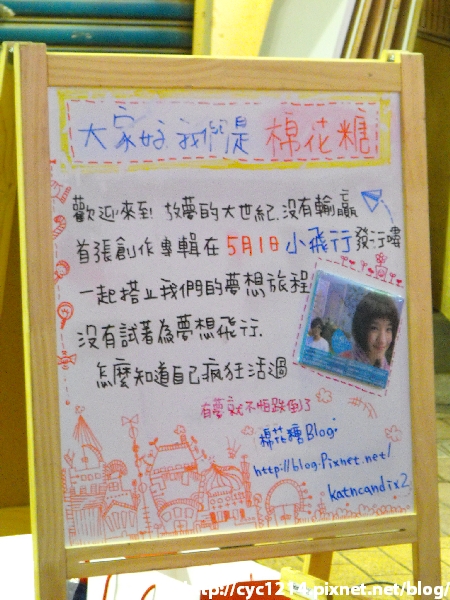 大家好我們是 棉花糖
歡迎來到! 放夢的大世紀.沒有輸贏
首張創作專輯在 5月1日 小飛行 發行嘍
一起搭上我們的夢想旅程
沒有試著為夢想飛行.
怎麼知道自己瘋狂活過
有夢就不怕跌倒了
棉花糖Blog:
http://blog.Pixnet.net/
katncandix2
http://cyc1214.pixnet.net/blog/